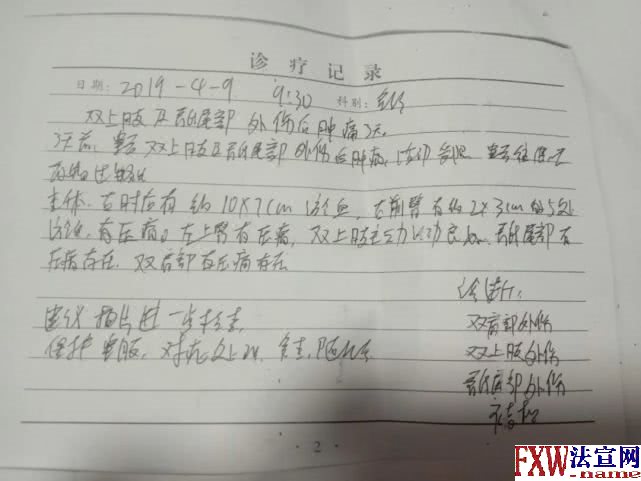 诊疗记录
日期: 2019-4-9 9:30 科别:
双上肢及骶尾部外伤后肿痛3天
3天前, 患者双上肢及骶尾部外伤后肿痛, 活动
查体: 右肘后有约10×7cm淤血, 右前臂有约2×3cm的5处
淤血, 有压痛。左上臂有压痛, 双上肢主动活动良好. 骶尾部有
压痛存在. 双肩部有压痛存在
诊断:
建议拍片进一步检查, 双肩部外伤
保护患肢, 对症处理, 双上肢外伤
骶尾部外伤
·2·
FXW法宣网
-name